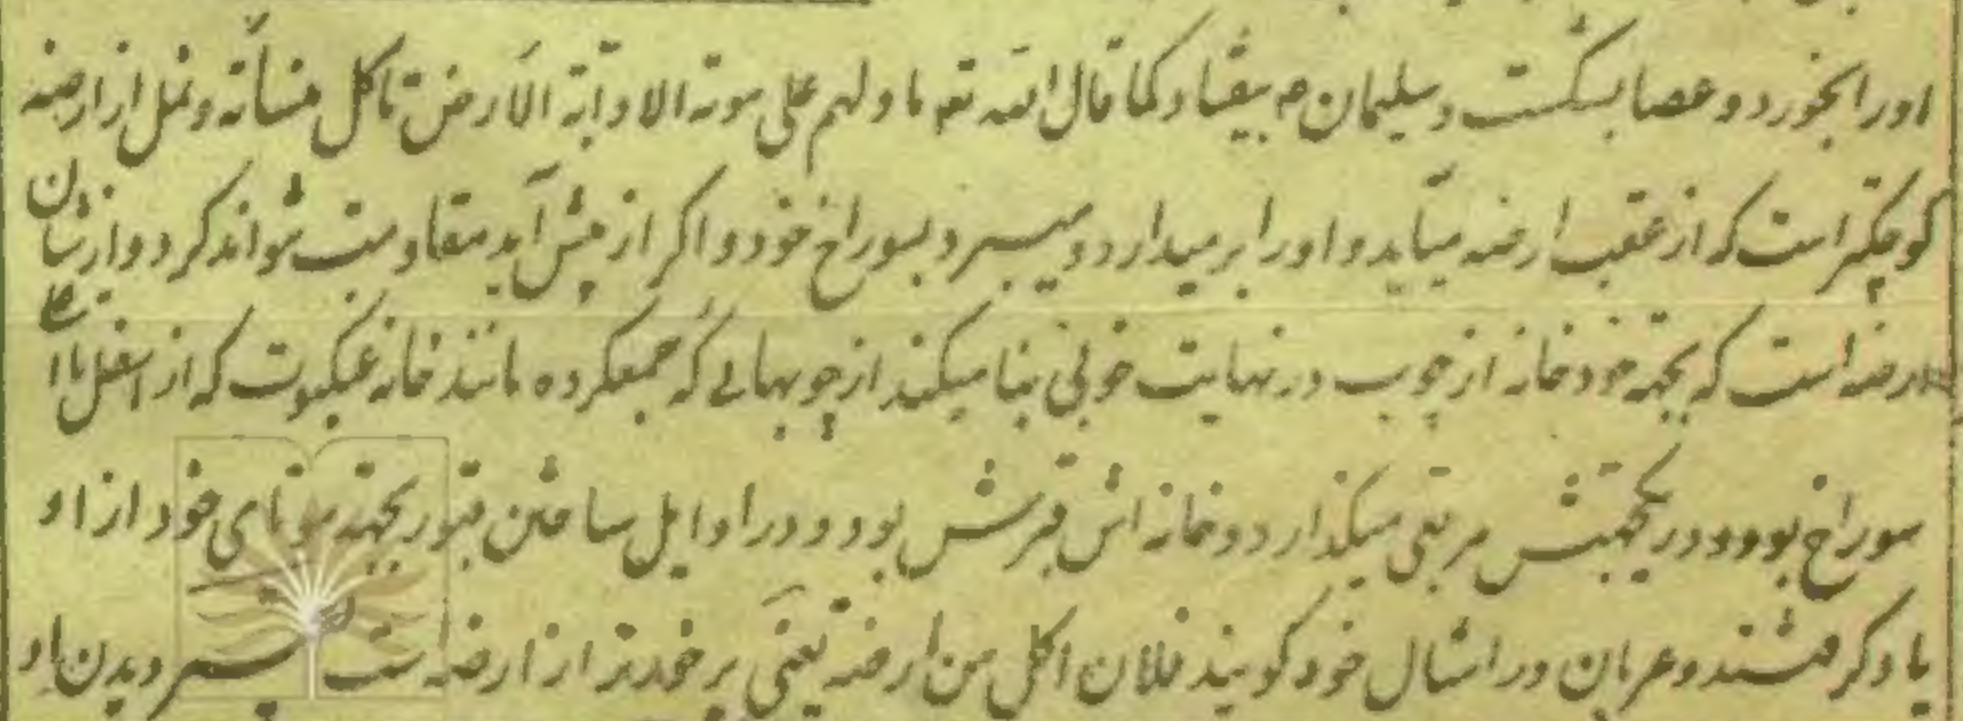 اورا بخورد و عصا بشکست و سلیمان ع بیفتاد کما قال الله تعه ما دلهم علی موته الا دآبة الاَرض تاکل منسأته و نمل از ارضه
کوچکتر است که از عقب ارضه میآید و اورا برمیدارد و میبرد بسوراخ خود و اکر از پیش آید مقاومت نتواند کرد و از شان
ارضه است که بجهة خود خانه از چوب در نهایت خوبی بنا میکند از چوبهائے که جمعکرده مانند خانه عنکبوت که از اسفل باعلی
سوراخ بود و در یکجهتش مربعی میکذارد و خانه اش قبرش بود و در اوایل ساختن قبور بجهة موتای خود از او
یاد کرفتند و عربان در امثال خود کویند فلان اکل من ارضه یعنی پرخورتر از ارضه است دیدن او